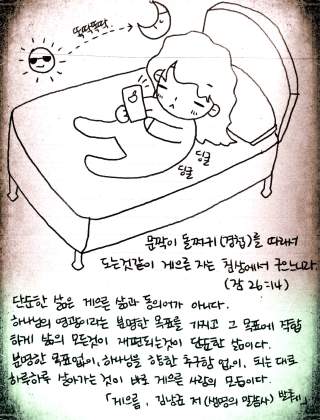 똑딱똑딱
딩굴
딩굴
문짝이 돌쩌귀(경첩)를 따라서
도는것같이 게으른 자는 침상에서 구으느니라.
(잠 26:14)
단순한 삶은 게으른 삶과 동의어가 아니다.
하나님의 영광이라는 분명한 목표를 가지고 그 목표에 적합
하게 삶의 모든것이 재편되는것이 단순한 삶이다.
분명한 목표없이, 하나님을 향한 추구함 없이, 되는 대로
하루하루 살아가는 것이 바로 게으른 사람의 모습이다.
「게으름, 김남준 저 (생명의 말씀사) 발췌」